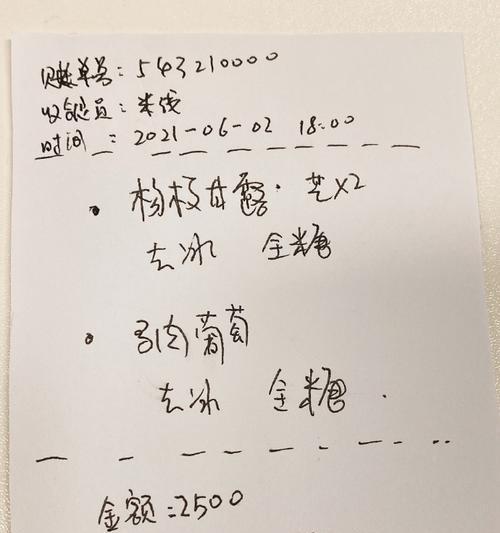 账单号：543210000
收银员：米线
时间：2021-06-02 18:00
杨枝甘露·芝X2
去冰 全糖
多肉葡萄
去冰 全糖.
金额:2500